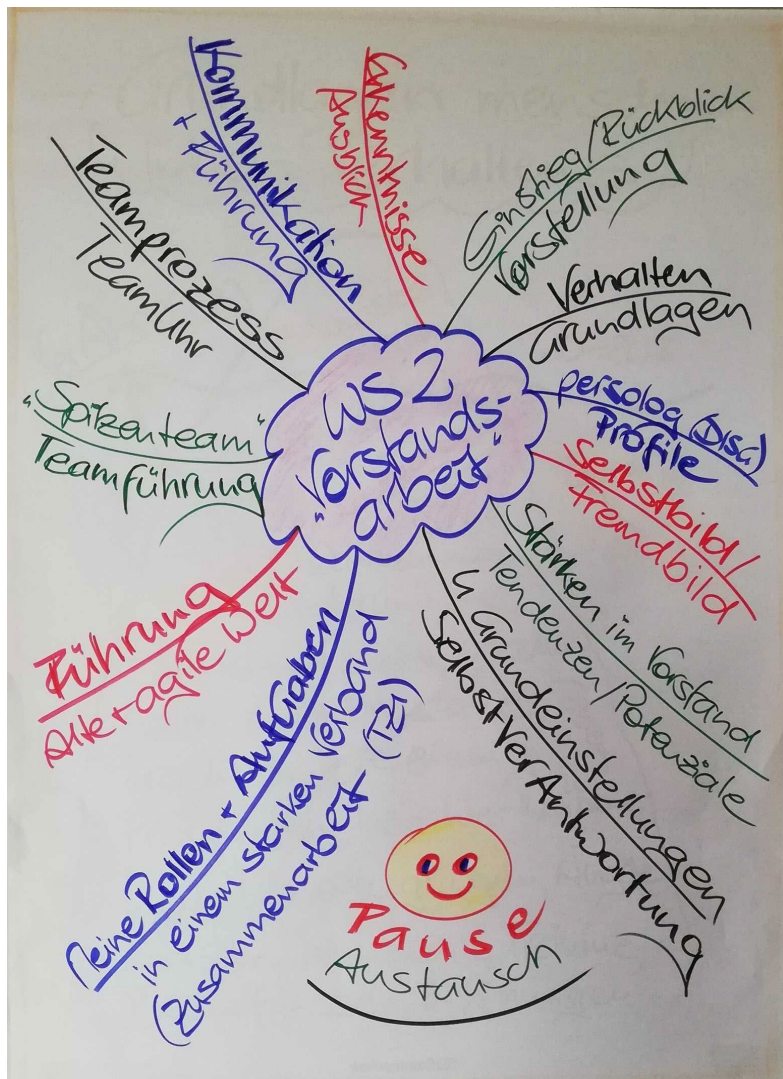 WS 2
"Vorstands-
arbeit"
Einstieg/Rückblick
Vorstellung
Verhalten
Grundlagen
persolog (DISG)
Profile
Selbstbild/
Fremdbild
Stärken im Vorstand
Tendenzen/Potenziale
4 Grundeinstellungen
SelbstVerAntwortung
Pause
Austausch
Meine Rollen + Aufgaben
in einem starken Verband
(Zusammenarbeit (TZI)
Führung
Alte + agile Welt
"Spitzenteam"
Teamführung
Teamprozess
TeamUhr
Kommunikation
+ Führung
Erkenntnisse
Ausblick